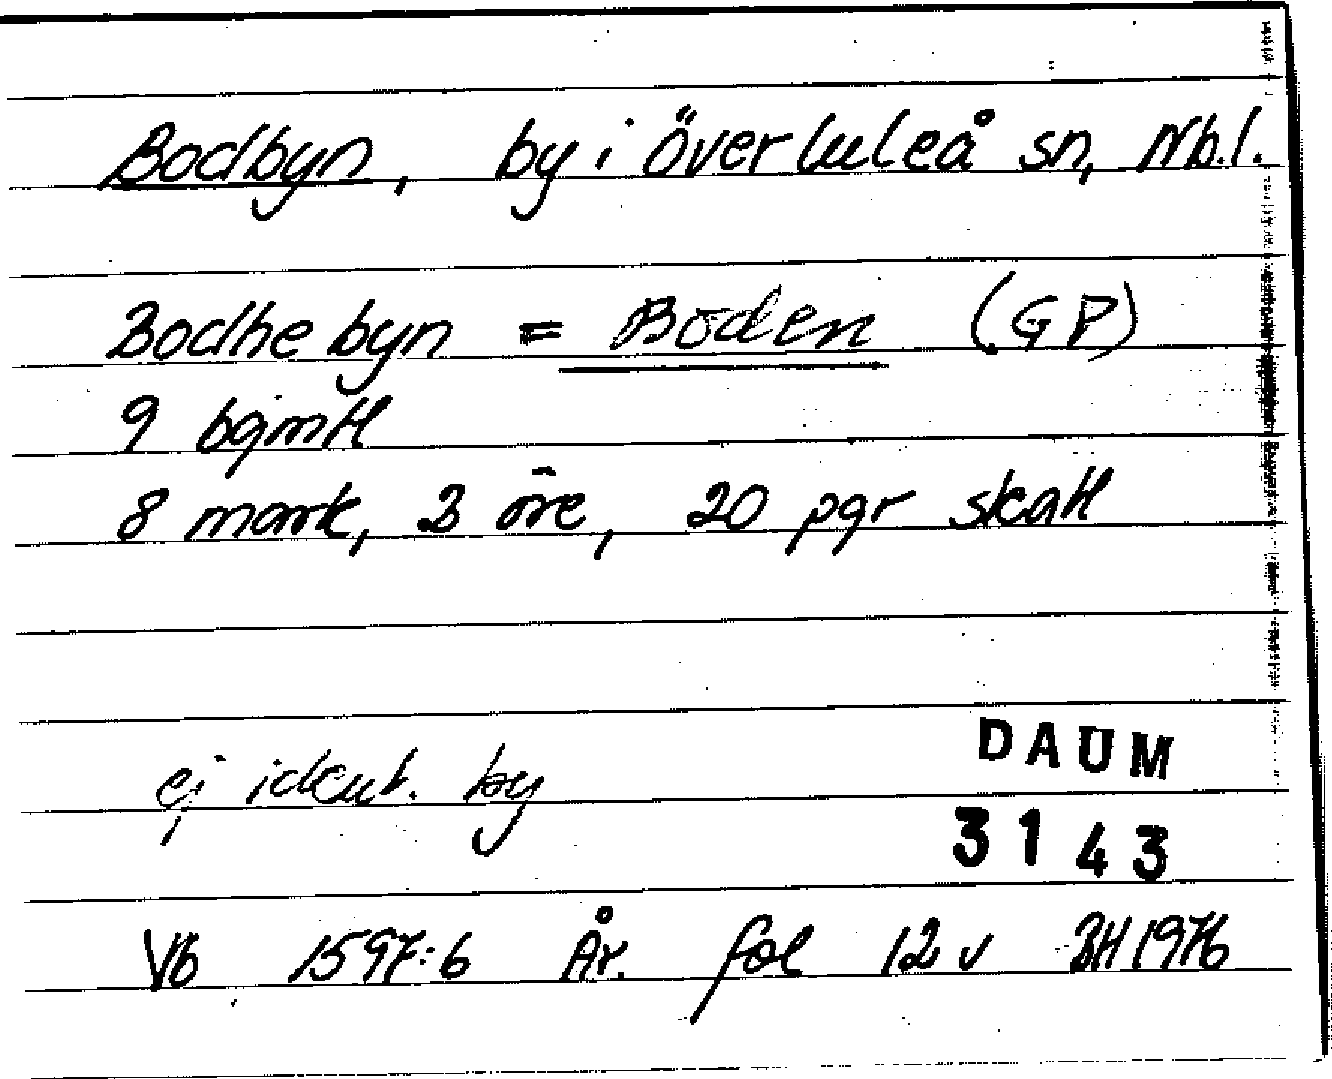 Bodbyn, by i Överluleå sn, Nb.l.
Bodhe byn = Boden (GP)
9 bgmtl
8 mark, 3 öre, 20 pgr skatt
DAUM
ej ident. by
3143
Vb 1597:6 År. fol 12 v BH 1976